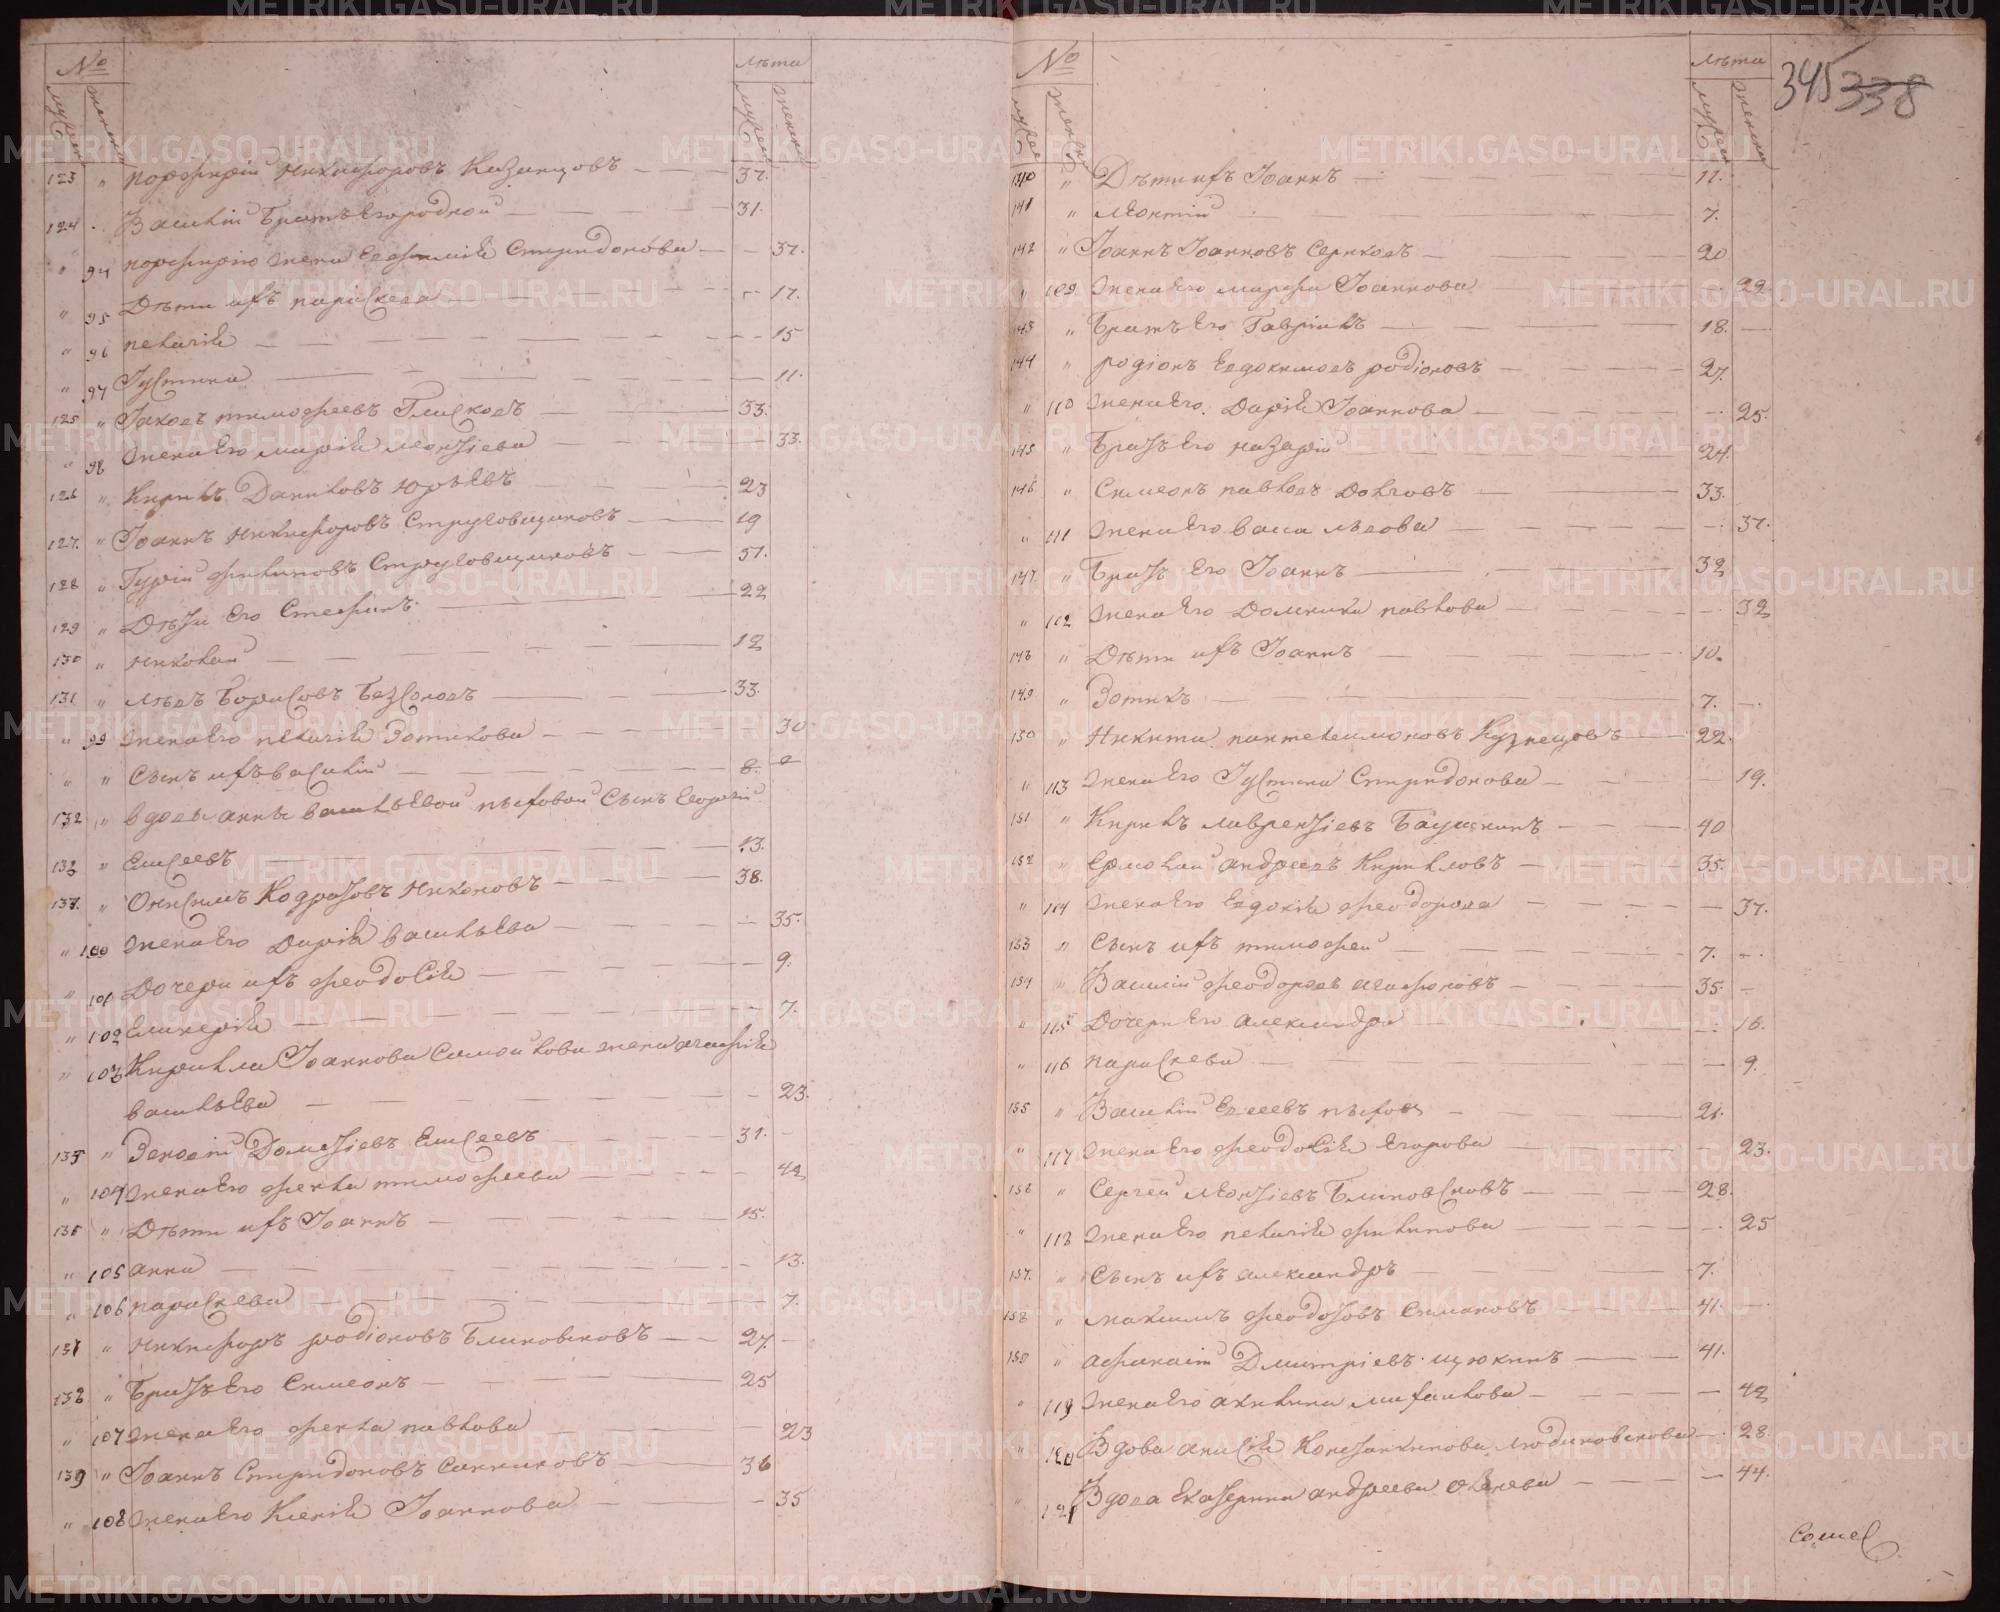 № лѣта
мужск женски мужеск женски
123 " порфирій никифоровъ Казанцовъ 37.
124 Василій братъ Егородной 31.
" 94 порфирію жена Евфимія Спиридонова 37.
" 95 Дѣти ихъ параскева 17.
" 96 пелагія 15
" 97 Іустина 11.
125 " Іаковъ тимофеевъ Глисковъ 33.
" 98 жена Его марія леонтіева 33.
126 " Кирилъ Даниловъ юрьевъ 23
127. " Іоаннъ никифоровъ Струговщиковъ 19
128 " Гурій филиповъ Струговщиковъ 51.
129 " Дѣти Его Стефанъ 22
130 " николай 12
131 " львъ борисовъ безсоновъ 33.
" 99 жена Его пелагія Зотикова 30
" " Сынъ ихъ василій 8.
132 " вдовы анны васильевой пьховой Сынъ Георгій
133 " Елисеевъ 13.
134. " Онисимъ Кодратовъ никоновъ 38.
" 100 жена Его Дарія васильева 35.
" 101 Дочери ихъ феодосія 9.
" 102 Гликерія 7.
" 103 Кирилла Іоаннова Самойлова жена агафія
васильева 23.
135 " Зиновій Дометіевъ Елисеевъ 31.
" 104 жена Его фекла тимофеева 42
136 " Дѣти ихъ Іоаннъ 15.
" 105 анна 13.
" 106 параскева 7.
137 " никифоръ родіоновъ Блиновсковъ 27.
138 " братъ Его Симеонъ 25
" 107 жена Его фекла павлова 23
139 " Іоаннъ Спиридоновъ Санниковъ 36
" 108 жена Его Ксенія Іоаннова 35
№ лѣта
мужеск женск мужеск женски
345 338
140 " Дѣти ихъ Іоаннъ 11.
141 " леонтій 7.
142 " Іоаннъ Іоанновъ Серковъ 20
" 109 жена Его марфа Іоаннова 22
143 " братъ Его Гавріилъ 18.
144 " родіонъ Евдокимовъ родіоновъ 27.
" 110 жена Его Дарія Іоаннова 25.
145 " братъ Его назарій 24.
146 " Симеонъ павловъ Долговъ 33.
" 111 жена Его васса львова 37.
147. " братъ Его Іоаннъ 32
" 112 жена Его Домника павлова 32
148 " Дѣти ихъ Іоаннъ 10.
149 " Зотикъ 7.
150 " никита пантелеимоновъ Кузнецовъ 22.
" 113 жена Его Іустина Спиридонова 19.
151 " Кирилъ лаврентіевъ баушкинъ 40
152 " Ермолай андреевъ Кириловъ 35.
" 114 жена Его Евдокія феодорова 37.
153 " Сынъ ихъ тимофей 7.
154 " Василій феодоровъ агафоновъ 35
" 115 Дочери Его александра 16.
" 116 параскева 9.
155 " Василій Елисеевъ пьховъ 21.
" 117 жена Его феодосія Егорова 23.
156 " Сергей леонтіевъ блиновсковъ 28.
" 118 жена Его пелагія филипова 25
157. " Сынъ ихъ александръ 7.
158 " максимъ феодотовъ Симановъ 41.
159 " афанасій Дмитріевъ щюкинъ 41.
" 119 жена Его акилина михаилова 42
" 120 Вдова анисія Константинова людиновскова 28
" 121 Вдова Екатерина андреева 44.